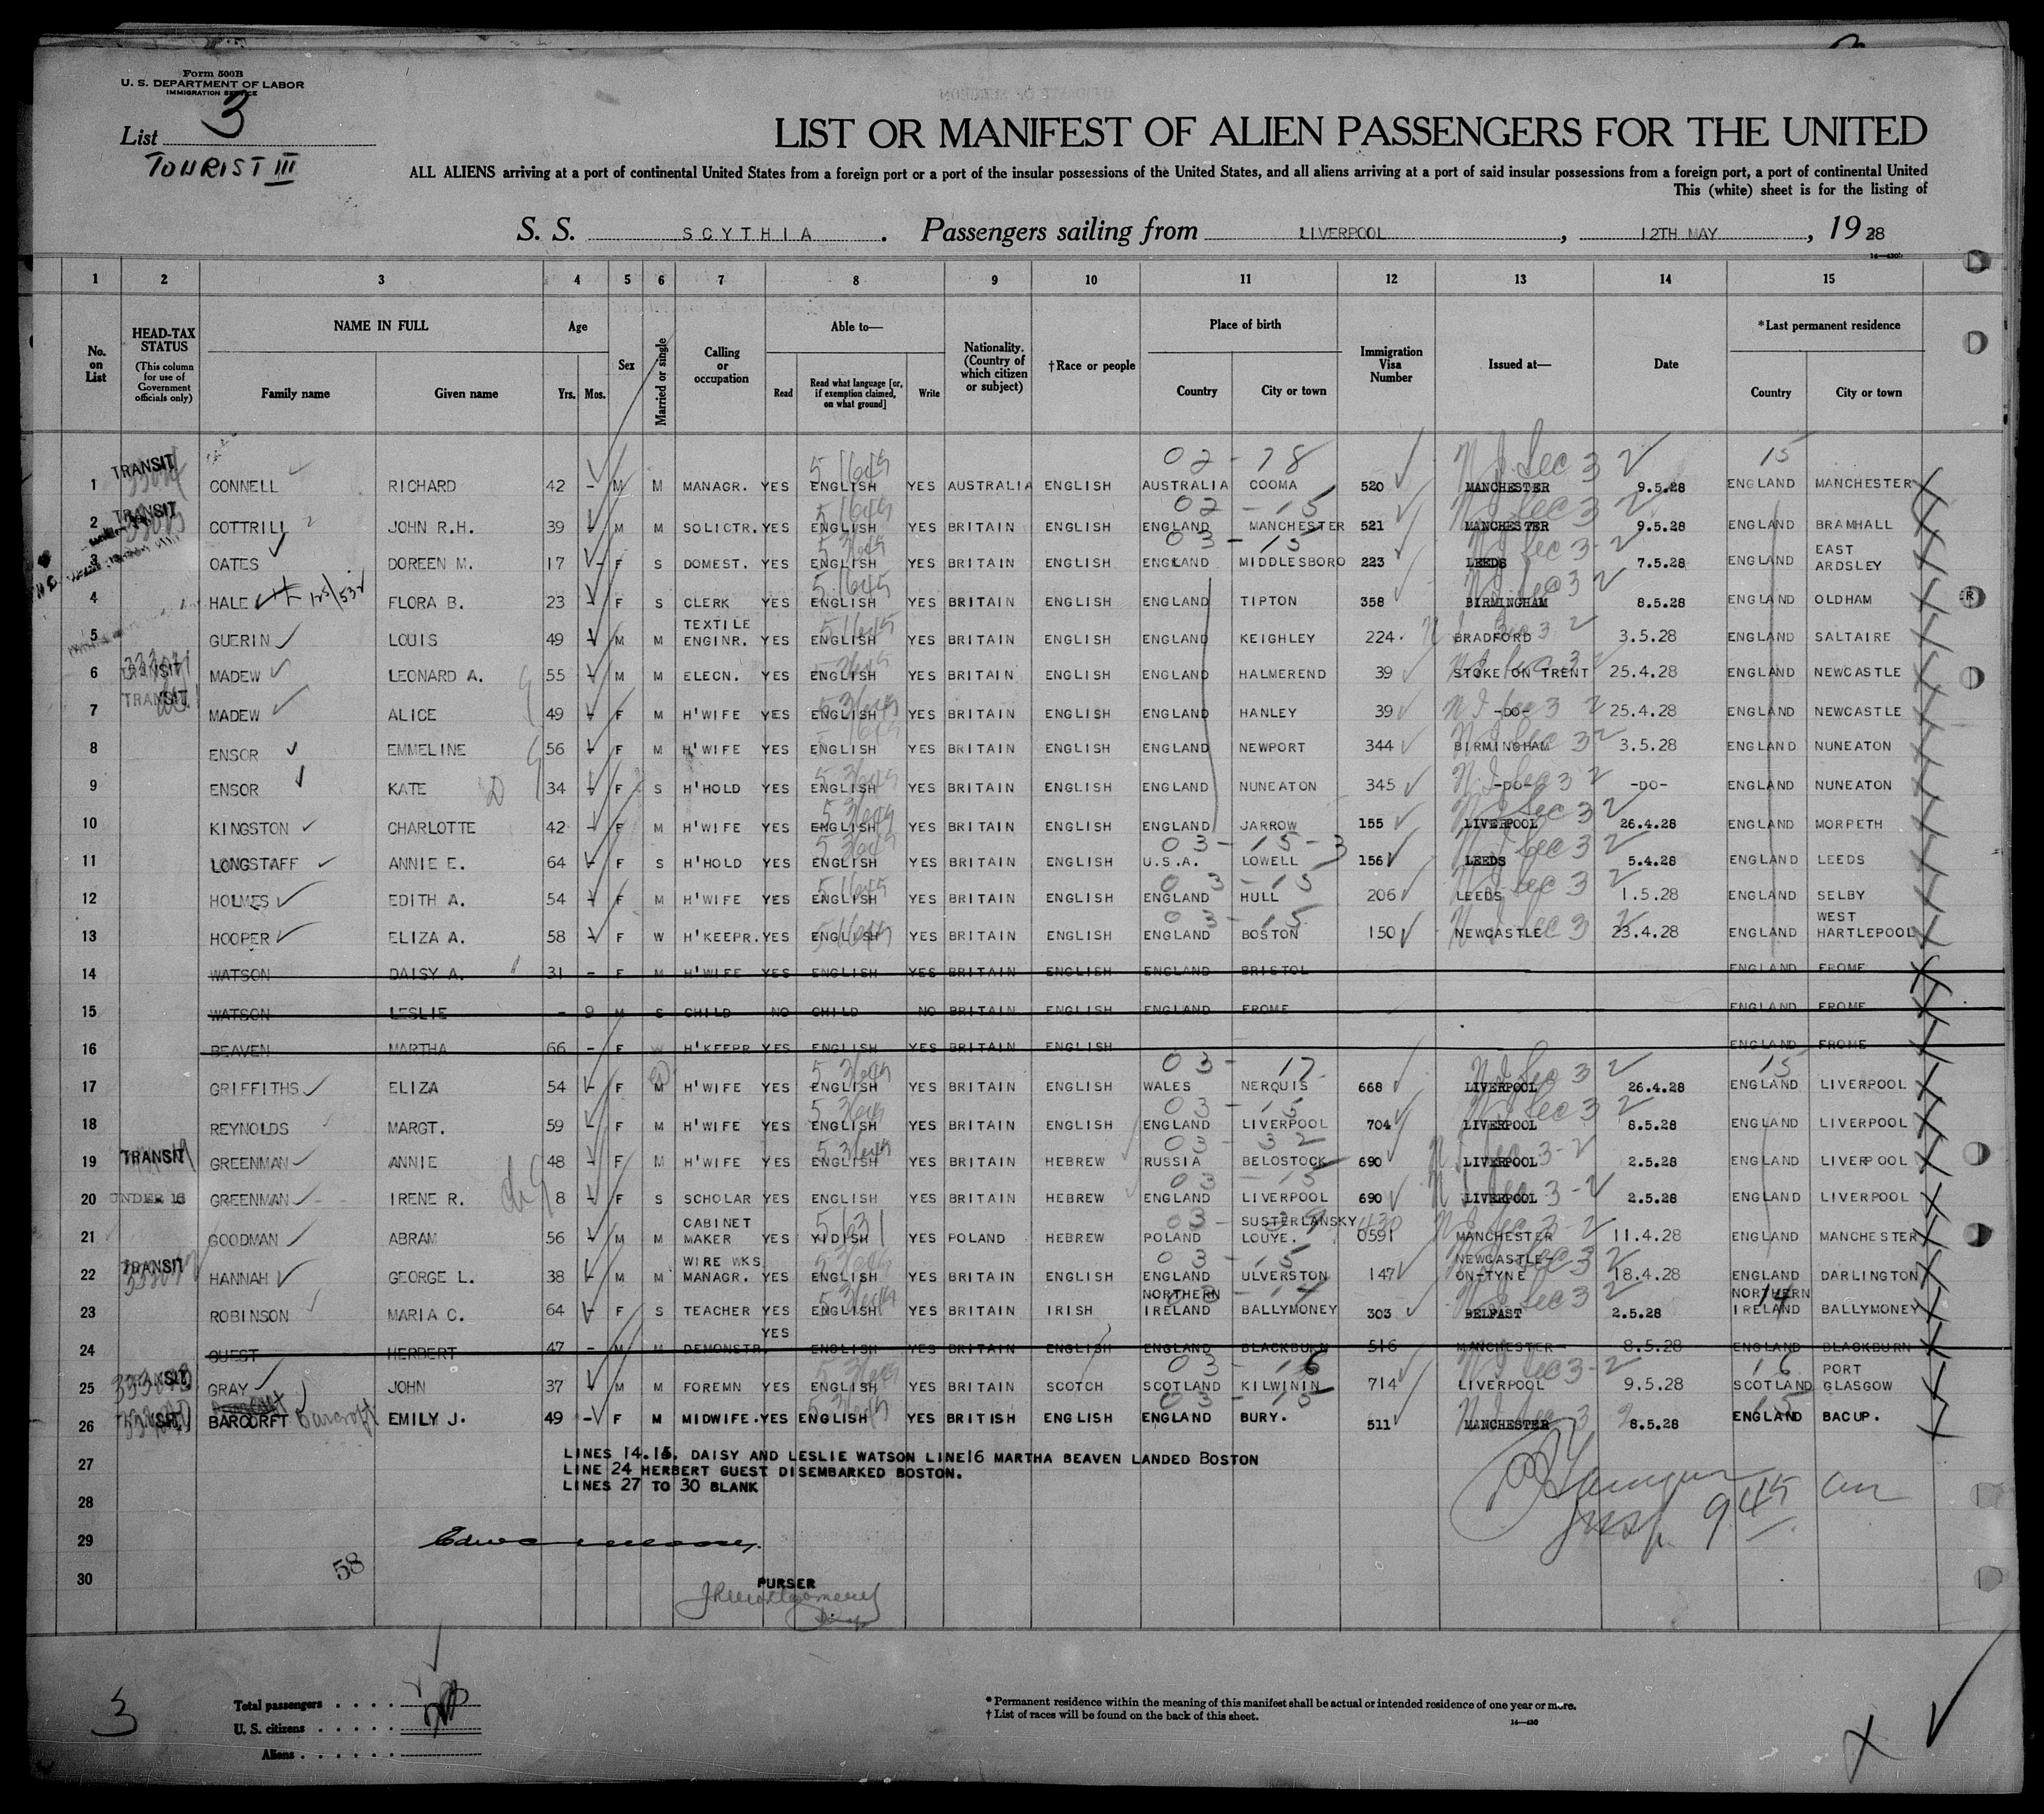 Form 500B
U. S. DEPARTMENT OF LABOR
IMMIGRATION SERVICE
List 3
TOURIST III
LIST OR MANIFEST OF ALIEN PASSENGERS FOR THE UNITED
ALL ALIENS arriving at a port of continental United States from a foreign port or a port of the insular possessions of the United States, and all aliens arriving at a port of said insular possessions from a foreign port, a port of continental United
This (white) sheet is for the listing of
S. S. SCYTHIA. Passengers sailing from LIVERPOOL, 12TH MAY, 1928
1 2 3 4 5 6 7 8 9 10 11 12 13 14 15
No. on List
HEAD-TAX STATUS (This column for use of Government officials only)
NAME IN FULL Family name Given name
Age Yrs. Mos.
Sex
Married or single
Calling or occupation
Able to— Read Read what language [or, if exemption claimed, on what ground] Write
Nationality. (Country of which citizen or subject)
†Race or people
Place of birth Country City or town
Immigration Visa Number
Issued at—
Date
*Last permanent residence Country City or town
1 TRANSIT CONNELL RICHARD 42 - M M MANAGR. YES ENGLISH YES AUSTRALIA ENGLISH AUSTRALIA COOMA 520 MANCHESTER 9.5.28 ENGLAND MANCHESTER
2 TRANSIT COTTRILL JOHN R.H. 39 - M M SOLICTR. YES ENGLISH YES BRITAIN ENGLISH ENGLAND MANCHESTER 521 MANCHESTER 9.5.28 ENGLAND BRAMHALL
3 OATES DOREEN M. 17 - F S DOMEST. YES ENGLISH YES BRITAIN ENGLISH ENGLAND MIDDLESBORO 223 LEEDS 7.5.28 ENGLAND EAST ARDSLEY
4 HALE FLORA B. 23 - F S CLERK YES ENGLISH YES BRITAIN ENGLISH ENGLAND TIPTON 358 BIRMINGHAM 8.5.28 ENGLAND OLDHAM
5 GUERIN LOUIS 49 - M M TEXTILE ENGINR. YES ENGLISH YES BRITAIN ENGLISH ENGLAND KEIGHLEY 224. BRADFORD 3.5.28 ENGLAND SALTAIRE
6 TRANSIT MADEW LEONARD A. 55 - M M ELECN. YES ENGLISH YES BRITAIN ENGLISH ENGLAND HALMEREND 39 STOKE ON TRENT 25.4.28 ENGLAND NEWCASTLE
7 TRANSIT MADEW ALICE 49 - F M H'WIFE YES ENGLISH YES BRITAIN ENGLISH ENGLAND HANLEY 39 -DO- 25.4.28 ENGLAND NEWCASTLE
8 ENSOR EMMELINE 56 - F M H'WIFE YES ENGLISH YES BRITAIN ENGLISH ENGLAND NEWPORT 344 BIRMINGHAM 3.5.28 ENGLAND NUNEATON
9 ENSOR KATE 34 - F S H'HOLD YES ENGLISH YES BRITAIN ENGLISH ENGLAND NUNEATON 345 -DO- -DO- ENGLAND NUNEATON
10 KINGSTON CHARLOTTE 42 - F M H'WIFE YES ENGLISH YES BRITAIN ENGLISH ENGLAND JARROW 155 LIVERPOOL 26.4.28 ENGLAND MORPETH
11 LONGSTAFF ANNIE E. 64 - F S H'HOLD YES ENGLISH YES BRITAIN ENGLISH U.S.A. LOWELL 156 LEEDS 5.4.28 ENGLAND LEEDS
12 HOLMES EDITH A. 54 - F M H'WIFE YES ENGLISH YES BRITAIN ENGLISH ENGLAND HULL 206 LEEDS 1.5.28 ENGLAND SELBY
13 HOOPER ELIZA A. 58 - F W H'KEEPR. YES ENGLISH YES BRITAIN ENGLISH ENGLAND BOSTON 150 NEWCASTLE 23.4.28 ENGLAND WEST HARTLEPOOL
14 WATSON DAISY A. 31 - F M H'WIFE YES ENGLISH YES BRITAIN ENGLISH ENGLAND BRISTOL ENGLAND FROME
15 WATSON LESLIE - 9 M S CHILD NO CHILD NO BRITAIN ENGLISH ENGLAND FROME ENGLAND FROME
16 BEAVEN MARTHA 66 - F W H'KEEPR YES ENGLISH YES BRITAIN ENGLISH ENGLAND FROME
17 GRIFFITHS ELIZA 54 - F M H'WIFE YES ENGLISH YES BRITAIN ENGLISH WALES NERQUIS 668 LIVERPOOL 26.4.28 ENGLAND LIVERPOOL
18 REYNOLDS MARGT. 59 - F M H'WIFE YES ENGLISH YES BRITAIN ENGLISH ENGLAND LIVERPOOL 704 LIVERPOOL 8.5.28 ENGLAND LIVERPOOL
19 TRANSIT GREENMAN ANNIE 48 - F M H'WIFE YES ENGLISH YES BRITAIN HEBREW RUSSIA BELOSTOCK 690 LIVERPOOL 2.5.28 ENGLAND LIVERPOOL
20 UNDER 16 GREENMAN IRENE R. 8 - F S SCHOLAR YES ENGLISH YES BRITAIN HEBREW ENGLAND LIVERPOOL 690 LIVERPOOL 2.5.28 ENGLAND LIVERPOOL
21 GOODMAN ABRAM 56 - M M CABINET MAKER YES YIDISH YES POLAND HEBREW POLAND SUSTERLANSKY LOUYE. 0591 MANCHESTER 11.4.28 ENGLAND MANCHESTER
22 TRANSIT HANNAH GEORGE L. 38 - M M WIRE WKS MANAGR. YES ENGLISH YES BRITAIN ENGLISH ENGLAND ULVERSTON 147 NEWCASTLE-ON-TYNE 18.4.28 ENGLAND DARLINGTON
23 ROBINSON MARIA C. 64 - F S TEACHER YES ENGLISH YES BRITAIN IRISH NORTHERN IRELAND BALLYMONEY 303 BELFAST 2.5.28 NORTHERN IRELAND BALLYMONEY
24 GUEST HERBERT 47 - M M DEMONSTR. YES ENGLISH YES BRITAIN ENGLISH ENGLAND BLACKBURN 516 MANCHESTER 8.5.28 ENGLAND BLACKBURN
25 TRANSIT GRAY JOHN 37 - M M FOREMN YES ENGLISH YES BRITAIN SCOTCH SCOTLAND KILWININ 714 LIVERPOOL 9.5.28 SCOTLAND PORT GLASGOW
26 BARCORFT Barcroft EMILY J. 49 - F M MIDWIFE. YES ENGLISH YES BRITISH ENGLISH ENGLAND BURY. 511 MANCHESTER 8.5.28 ENGLAND BACUP.
27
28
29
30
LINES 14.15. DAISY AND LESLIE WATSON LINE16 MARTHA BEAVEN LANDED BOSTON
LINE 24 HERBERT GUEST DISEMBARKED BOSTON.
LINES 27 TO 30 BLANK
Insp. 9 45 am
58
PURSER
3
Total passengers
U. S. citizens
Aliens
* Permanent residence within the meaning of this manifest shall be actual or intended residence of one year or more.
† List of races will be found on the back of this sheet.
14—430